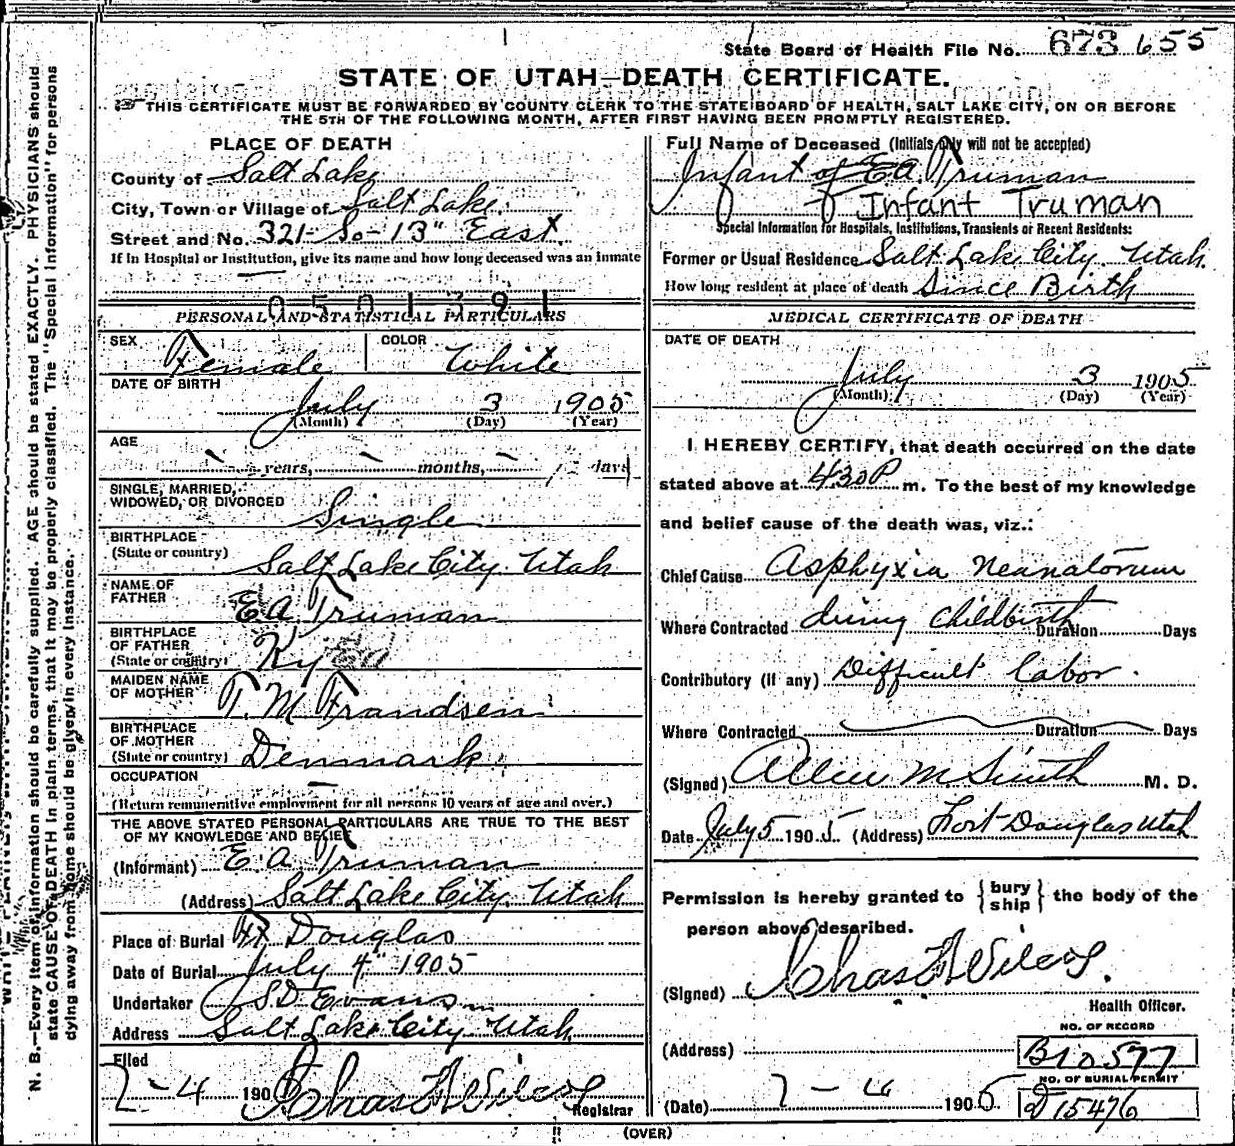 State Board of Health File No. 673 655
STATE OF UTAH—DEATH CERTIFICATE.
THIS CERTIFICATE MUST BE FORWARDED BY COUNTY CLERK TO THE STATE BOARD OF HEALTH, SALT LAKE CITY, ON OR BEFORE
THE 5TH OF THE FOLLOWING MONTH, AFTER FIRST HAVING BEEN PROMPTLY REGISTERED.
PLACE OF DEATH
County of Salt Lake
City, Town or Village of Salt Lake
Street and No. 321 So 13" East
If in Hospital or Institution, give its name and how long deceased was an inmate
0501391
PERSONAL AND STATISTICAL PARTICULARS
SEX Female COLOR White
DATE OF BIRTH
July 3 1905
(Month) (Day) (Year)
AGE
years, months, 1/2 days
SINGLE, MARRIED,
WIDOWED, OR DIVORCED
Single
BIRTHPLACE
(State or country) Salt Lake City Utah
NAME OF
FATHER E A Truman
BIRTHPLACE
OF FATHER
(State or country) Ky
MAIDEN NAME
OF MOTHER T. M Frandsen
BIRTHPLACE
OF MOTHER
(State or country) Denmark
OCCUPATION
(Return remunerative employment for all persons 10 years of age and over.)
THE ABOVE STATED PERSONAL PARTICULARS ARE TRUE TO THE BEST
OF MY KNOWLEDGE AND BELIEF
(Informant) E A Truman
(Address) Salt Lake City Utah
Place of Burial Ft Douglas
Date of Burial July 4" 1905
Undertaker S. D. Evans
Address Salt Lake City Utah
Filed
7-4 190 Chas F Wilcox
Registrar
Full Name of Deceased (Initials only will not be accepted)
Infant of E A. Truman
Infant Truman
Special Information for Hospitals, Institutions, Transients or Recent Residents:
Former or Usual Residence Salt Lake City Utah.
How long resident at place of death Since Birth
MEDICAL CERTIFICATE OF DEATH
DATE OF DEATH
July 3 1905
(Month) (Day) (Year)
I HEREBY CERTIFY, that death occurred on the date
stated above at 4.30 P m. To the best of my knowledge
and belief cause of the death was, viz.:
Chief Cause Asphyxia Neanatorum
Where Contracted during Childbirth Duration Days
Contributory (if any) Difficult labor.
Where Contracted Duration Days
(Signed) Allen M Smith M. D.
Date July 5 1905 (Address) Fort Douglas Utah
Permission is hereby granted to {bury ship} the body of the
person above described.
(Signed) Chas F Wilcox.
Health Officer.
NO. OF RECORD
(Address) B10577
NO. OF BURIAL PERMIT
(Date) 7-4 1905 D15476
(OVER)
N. B.—Every item of information should be carefully supplied. AGE should be stated EXACTLY. PHYSICIANS should
state CAUSE OF DEATH in plain terms, that it may be properly classified. The "Special Information" for persons
dying away from home should be given in every instance.